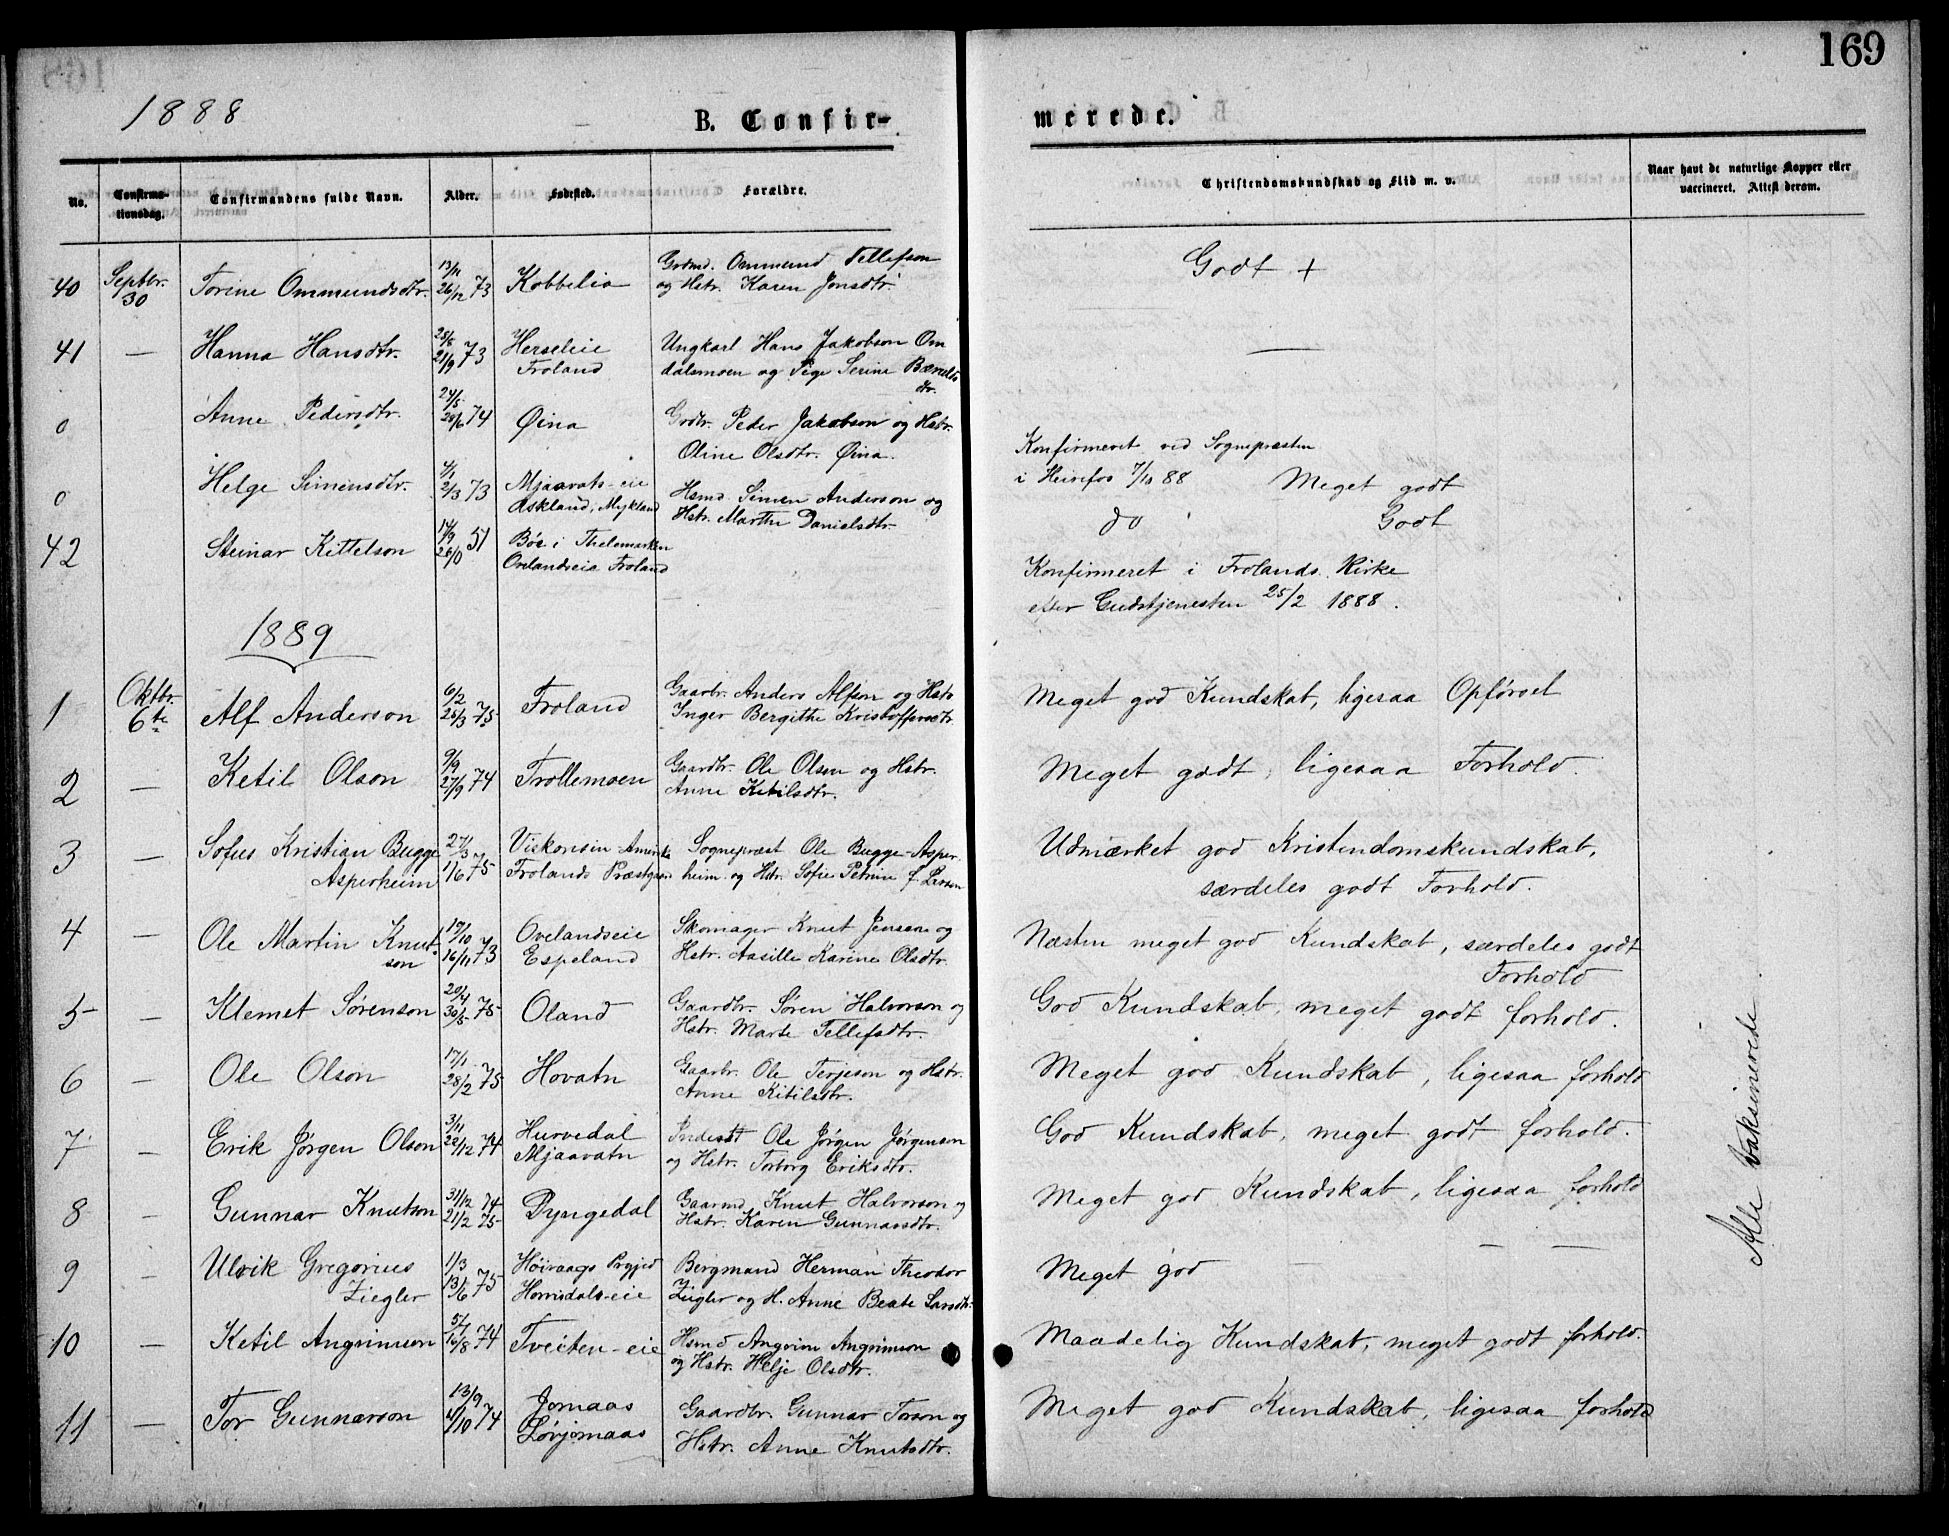 169
1888
B. Confirmerede.
No.
Confirmationsdag.
Confirmandens fulde Navn.
Alder.
Fødested.
Forældre.
Christendomskundskab og Flid m. v.
Naar havt de naturlige Kopper eller
vaccineret. Attest derom.
40 Septbr. 30 Torine Ommundsdtr. 13/11 26/12 73 Kobbelia
Grdmd. Ommund Tellefson
og Hstr. Karen Jonsdtr.
Godt +
41 — Hanna Hansdtr. 28/8 21/9 73 Herseleie
Froland
Ungkarl Hans Jakobson Om
dalsmoen og Pige Serine Bærulfs
dtr.
—
0 Anne Pedersdtr. 24/5 28/6 74 Øina
Grdbr. Peder Jakobson og Hstr.
Oline Olsdtr. Øina.
Konfirmeret ved Sognepræsten
i Heirefos 7/10 88 Meget godt
0 Helge Simensdtr. 4/1 2/3 73 Mjaavats-eie
Askland, Mykland
Hsmd. Simen Anderson og
Hstr. Marthe Danielsdtr.
do Godt
42 Steinar Kittelson 51 Bøe i Thelemarken
Ovelandseia Froland
Konfirmeret i Frolands Kirke
efter Gudstjenesten 25/2 1888.
1889
1 Oktbr. 6te Alf Anderson 6/2 25/3 75 Froland
Gaarbr. Anders Alfson og Hstr
Inger Bergithe Kristoffersdtr
Meget god Kundskab, ligesaa Opførsel
2 — Ketil Olson 9/9 27/9 74 Trollemoen
Gaardbr. Ole Olsen og Hstr.
Anne Ketilsdtr.
Meget godt, ligesaa Forhold.
3 — Sofus Kristian Bugge
Asperheim
27/3 1/6 75 Viskonsin Amerika
Frolands Præstgaard
Sognepræst Ole Bugge-Asper
heim og Hstr. Sofie Petrine f. Larsen
Udmærket god Kristendomskundskab,
særdeles godt Forhold.
4 — Ole Martin Knut
son
17/10 16/11 73 Ovelandseie
Espeland
Skomager Knut Jensen og
Hstr. Aasille Karine Olsdtr.
Næsten meget god Kundskab, særdeles godt
Forhold
5 — Klemet Sørenson 20/4 30/5 75 Oland
Gaardbr. Søren Halvorson og
Hstr. Marte Tellefsdtr.
God Kundskab, meget godt forhold.
6 — Ole Olson 17/1 28/2 75 Hovatn
Gaarbr. Ole Terjeson og Hstr.
Anne Kitilsdtr.
Meget god Kundskab, ligesaa forhold
7 — Erik Jørgen Olson 3/11 22/12 74 Hurvedal
Mjaavatn
Inderst Ole Jørgen Jørgenson
og Hstr. Torborg Eriksdtr.
God Kundskab, meget godt forhold.
8 — Gunnar Knutson 31/12 74 21/2 75 Dyngedal
Gaarmd Knut Halvorson og
Hstr. Karen Gunnarsdtr.
Meget god Kundskab, ligesaa forhold
9 — Ulrik Gregorius
Ziegler
1/3 13/6 75 Høivaags Prgjld
Hornsdals-eie
Bergmand Herman Theodor
Ziegler og H. Anne Beate Larsdtr.
Meget god — —
10 — Ketil Angrimson 5/7 16/8 74 Tveiten-eie
Hsmd Angrim Angrimson
og Hstr. Helje Olsdtr.
Maadelig Kundskab, meget godt forhold.
11 — Tor Gunnarson 13/9 4/10 74 Jomaas
Løvjomaas
Gaardbr. Gunnar Torson og
Hstr. Anne Knutsdtr.
Meget god Kundskab, ligesaa forhold
Alle vaksinerede